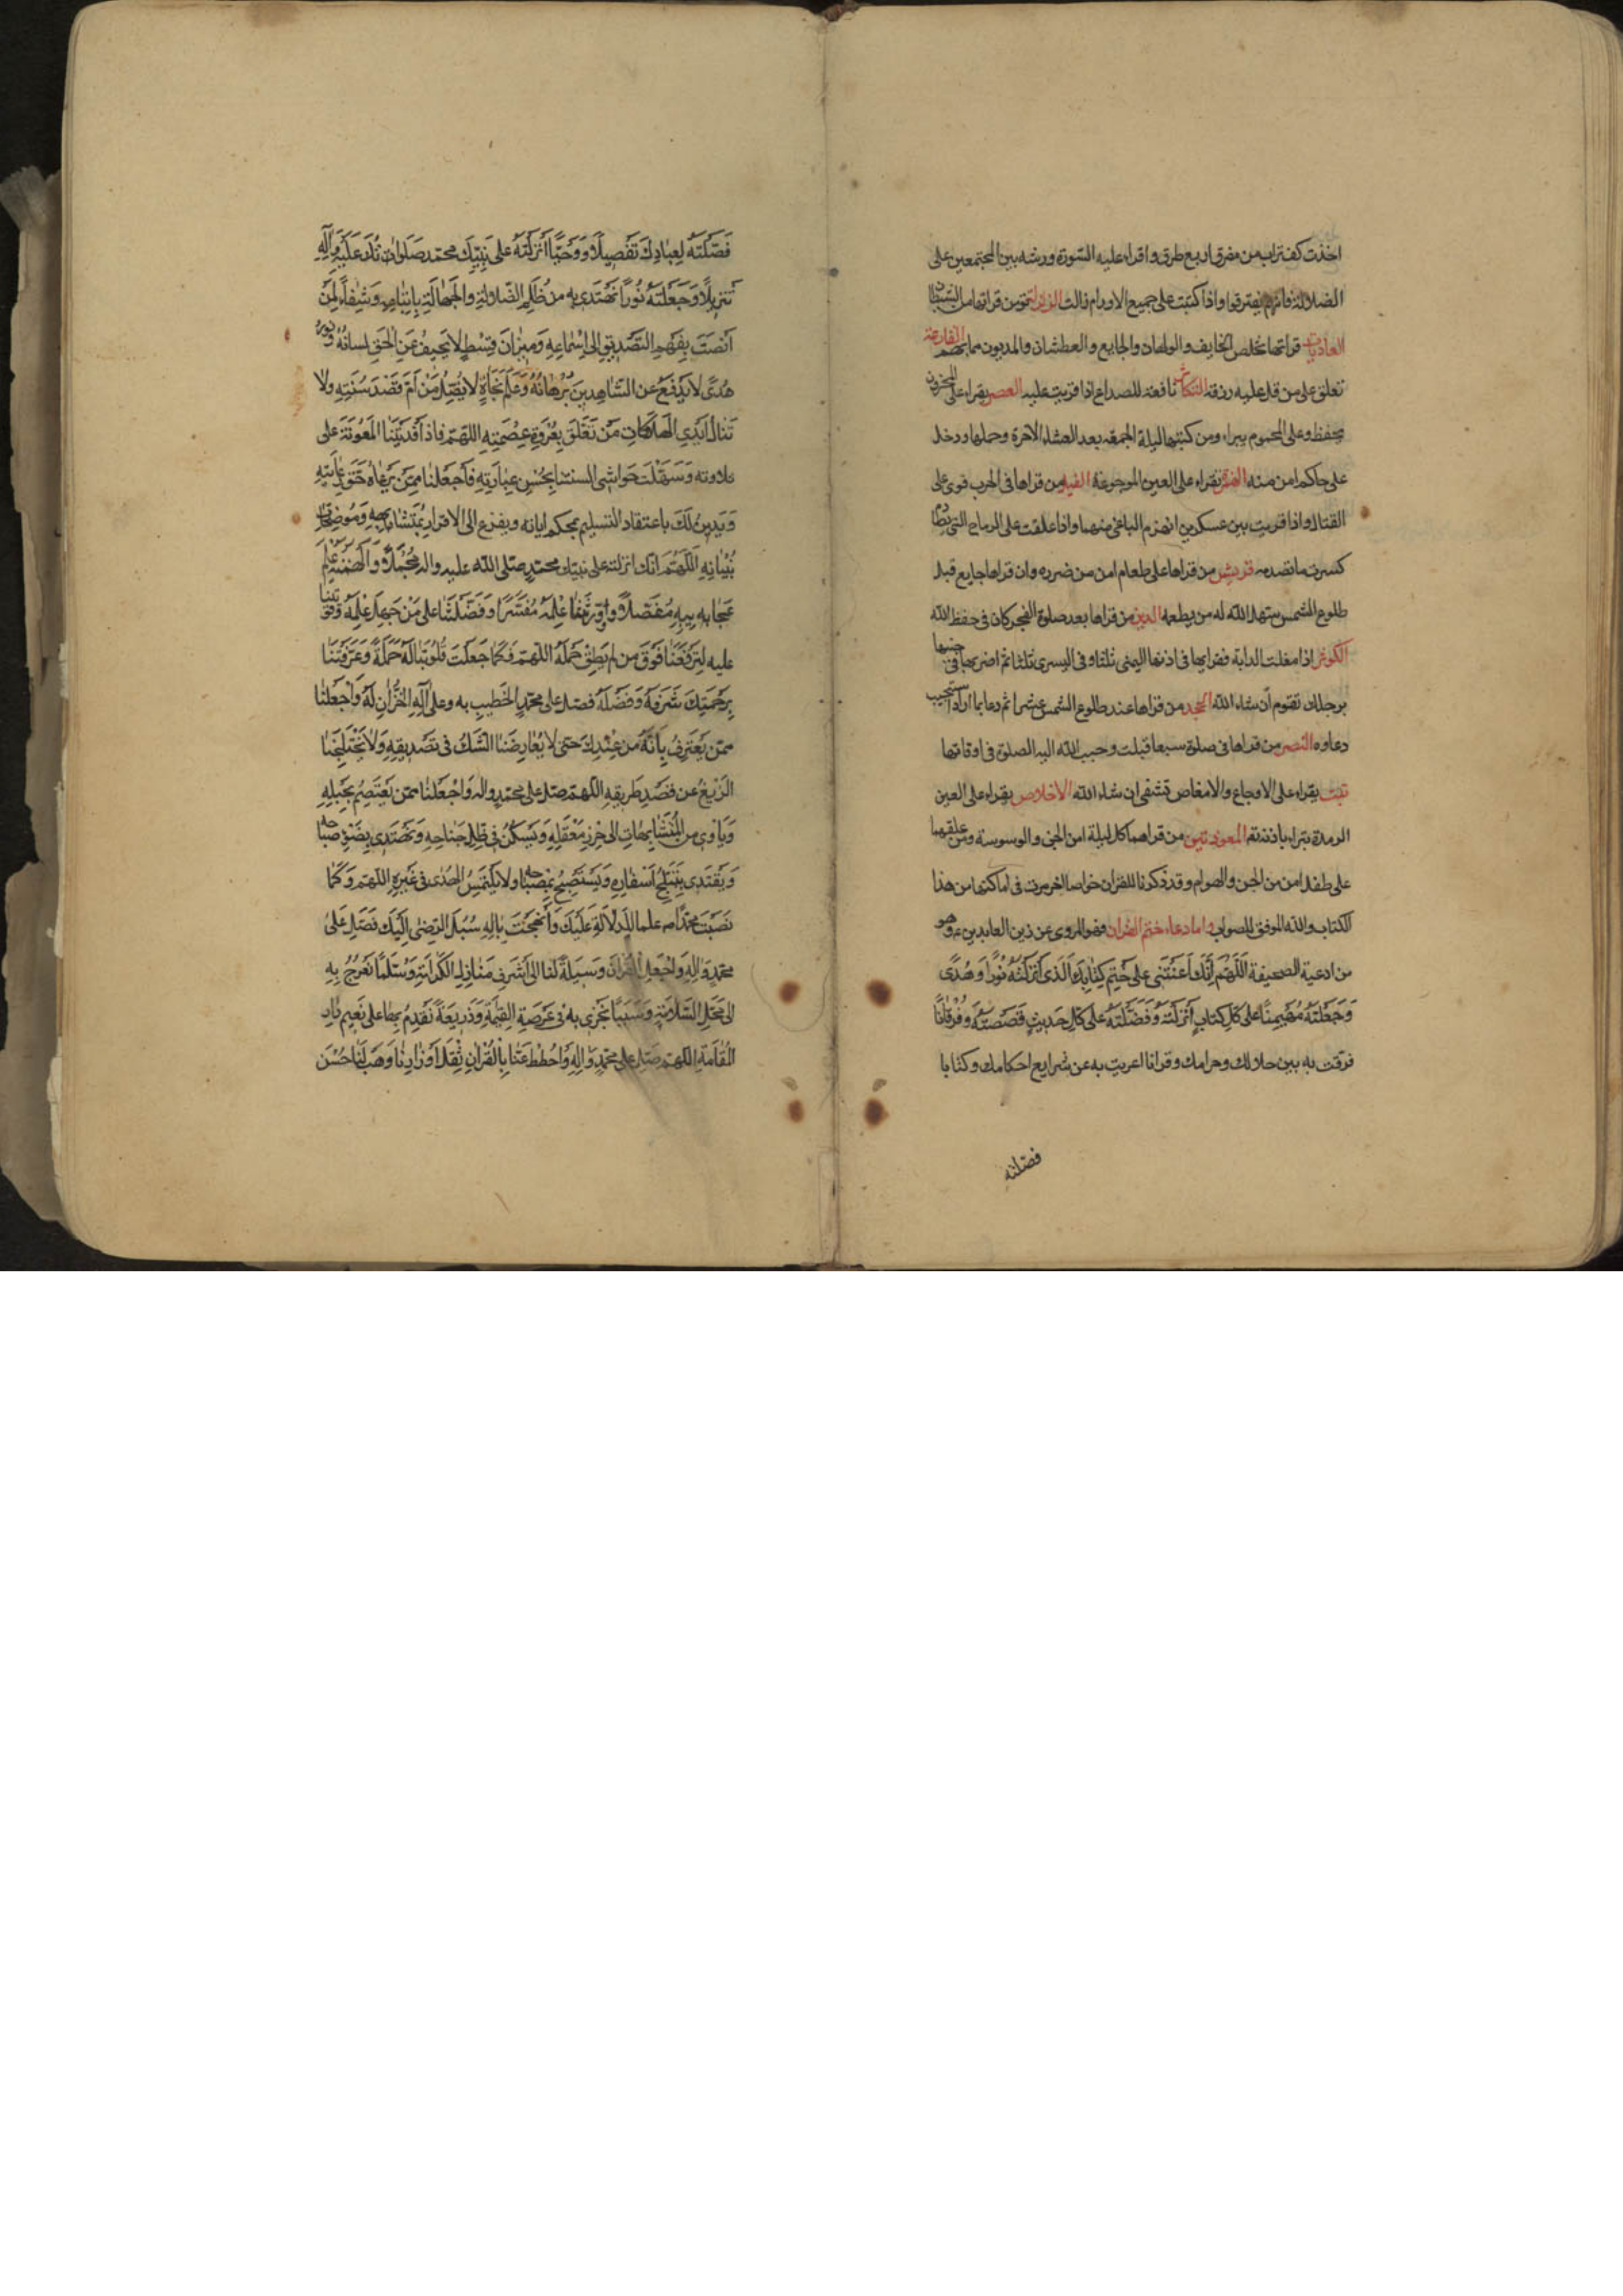 اخذت كف تراب من مفرق اربع طرق واقراء عليه السورة ورشه بين المجتمعين على
الضلالة فانهم يفترقوا واذا كتبت على جميع الاورام زالت الزلزلة تؤمن قراتها من السلطان
العاديات قراتها تخلص الخايف والولهان والجايع والعطشان والمديون مما بهم القارعة
تعلق على من قل عليه رزقه التكاثر نافعة للصداع اذا قريت عليه العصر يقراء على المخزون
يحفظ وعلى المحموم يبراء ومن كتبها ليلة الجمعة بعد العشاء الاخرة وحملها ودخل
على حاكم امن منه الهمزة يقراء على العين الموجوعة الفيل من قراها في الحرب قوى على
القتال واذا قريت بين عسكرين انهزم الباغي منهما واذا علقت على الرماح التي
كسرت ما تصدمه قريش من قراها على طعام امن من ضرره وان قراها جايع قبل
طلوع الشمس سهل الله له من يطعمه الدين من قراها بعد صلوة الفجر كان في حفظ الله
الكوثر اذا مغلت الدابة فقرابها في اذنها اليمنى ثلثا وفي اليسرى ثلثا ثم اضربها في جنبها
برجلك تقوم ان شاء الله الجحد من قراها عند طلوع الشمس عشرا ثم دعا بما اراد استجيب
دعاوه النصر من قراها في صلوة سبعا قبلت وحبب الله اليه الصلوة في اوقاتها
تبت يقراء على الاوجاع والامغاص تشفى ان شاء الله الاخلاص يقراء على العين
الرمدة تبراء باذنه تع المعوذتين من قراهما كل ليلة امن الجن والوسوسة ومن علقهما
على طفل امن من الجن والهوام وقد ذكرنا للقران خواصا اخر مرت في اماكنها من هذا
الكتاب والله الموفق للصواب واما دعاء ختم القران فهو المروى عن زين العابدين ع وهو
من ادعية الصحيفة اَللّهُمَّ اِنَّكَ اَعَنْتَنِي على خَتْمِ كِتابِكَ الَّذى اَنْزَلْتَهُ نُورًا وَهُدًى
وَجَعَلْتَهُ مُهَيْمِنًا على كُلِّ كِتابٍ اَنْزَلْتَهُ وَفَضَّلْتَهُ على كُلِّ حَديثٍ قَصَصْتَهُ وَفُرْقانًا
فرقت به بين حلالك وحرامك وقرانا اعربت به عن شرايع احكامك وكتابا
فصلته
فَصَّلْتَهُ لِعِبادِكَ تَفْصِيلًا وَوَحْيًا اَنْزَلْتَهُ على نَبِيِّكَ محمد صَلَواتُكَ عَلَيْهِ وَآلِهِ
تَنْزِيلًا وَجَعَلْتَهُ نُورًا نَهْتَدى به من ظُلَمِ الضَّلالةِ والجَهالَةِ بِاتِّباعِهِ وَشِفاءً لِمَنْ
اَنْصَتَ بِفَهْمِ التَّصْدِيقِ الى اسْتِماعِهِ وَمِيزانَ قِسْطٍ لا يَحِيفُ عَنِ الحَقِّ لسانُهُ ونور
هُدًى لا يَنْدَفِعُ عن الشّاهِدِينَ بُرْهانُهُ وَعَلَمَ نَجاةٍ لا يَضِلُّ مَنْ اَمَّ قَصْدَ سُنَّتِهِ ولا
تَنالُ اَيْدِى الهَلَكاتِ مَنْ تَعَلَّقَ بِعُرْوَةِ عِصْمَتِهِ اللهم فاذ اَفَدْتَنَا المَعُونَةَ على
تلاوته وَسَهَّلْتَ حَواشى السنتنا بِحُسْنِ عِبارَتِهِ فَاجْعَلْنا مِمَّنْ يَرْعاهُ حَقَّ رِعايَتِهِ
وَيَدِينُ لَكَ باعتقاد التسليم لمحكم اياته ويفزع الى الاقرار بِمُتَشابِهِهِ وَمُوضِحاتِ
بَيِّناتِهِ اللّهُمَّ انك انزلته على نبيك محمدٍ صلى الله عليه واله مُجْمَلًا وَاَلْهَمْتَهُ عِلْمَ
عَجايِبِهِ مُفَصَّلًا وَوَرَّثْتَنا عِلْمَهُ مُفَسَّرًا وَفَضَّلْتَنا على مَنْ جَهِلَ عِلْمَهُ وَقَوَّيْتَنا
عليه لِتَرْفَعَنا فَوْقَ من لم يُطِقْ حَمْلَهُ اللّهم فَكَما جَعَلْتَ قُلُوبَنا لَهُ حَمَلَةً وَعَرَّفْتَنا
بِرَحْمَتِكَ شَرَفَهُ وَفَضْلَهُ فصل على محمدٍ الخَطيبِ به وعلى آلِهِ الخُزّانِ لَهُ وَاجْعَلْنا
ممن يَعْتَرِفُ بِاَنَّهُ مِنْ عِنْدِكَ حَتى لا يُعارِضَنا الشَّكُ في تَصْدِيقِهِ وَلا يَخْتَلِجَنا
الزَّيْغُ عن قَصْدِ طَرِيقِهِ اللّهم صل على محمدٍ واله وَاجْعَلْنا ممن يَعْتَصِمُ بِحَبْلِهِ
وَيَأوى من المُتَشابِهاتِ الى حِرْزِ مَعْقِلِهِ وَيَسْكُنُ في ظِلِّ جَناحِهِ وَيَهْتَدى بِضَوْءِ صَباحِهِ
وَيَقْتَدِى بِتَبَلُّجِ اَسْفارِهِ وَيَسْتَصْبِحُ بِمِصْباحِهِ ولا يَلْتَمِسُ الهُدى في غَيْرِهِ اللّهم وَكَما
نَصَبْتَ به محمدًا علما لِلدَّلالَةِ عَلَيْكَ وَاَنْهَجْتَ بِآلِهِ سُبُلَ الرِّضى اِلَيْكَ فَصَلِّ عَلى
محمدٍ وَآلِهِ وَاجْعَلِ القُرآنَ وَسِيلَةً لَنا الى اَشْرَفِ مَنازِلِ الكَرامَةِ وَسُلَّمًا نَعْرُجُ بِهِ
الى مَحَلِّ السَّلامَةِ وَسَبَبًا نُجْزى به في عَرْصَةِ القِيمَةِ وَذَرِيعَةً نَقْدِمُ بِها على نَعِيمِ دارِ
المُقامَةِ اللّهم صَلِّ على محمدٍ وَآلِهِ وَاحْطُطْ عَنّا بِالقُرْانِ ثِقْلَ اَوْزارِنا وَهَبْ لَنا حُسْنَ